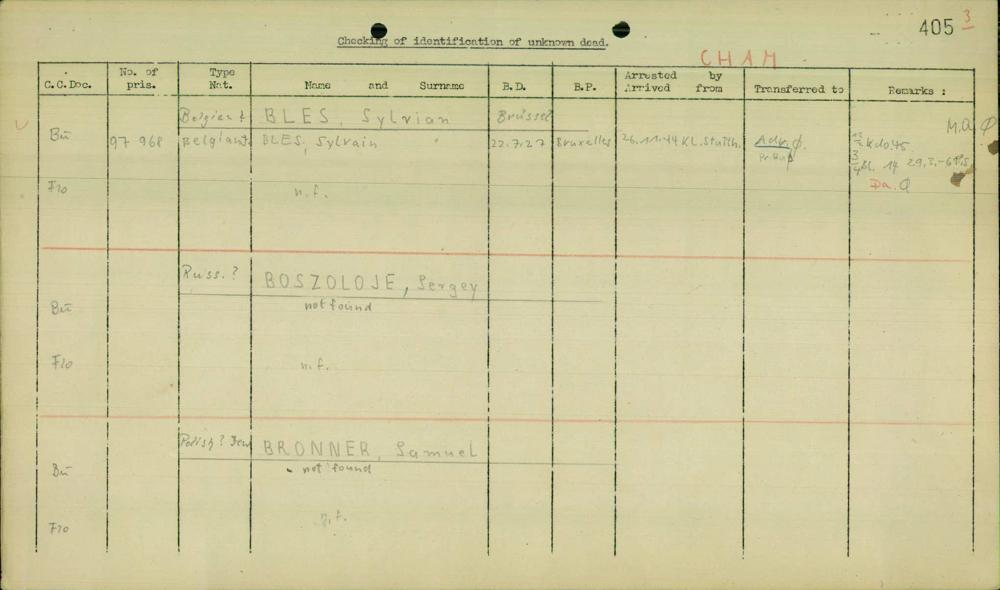 405 3
Checking of identification of unknown dead.
CHAM
C.C.Doc. No. of pris. Type Nat. Name and Surname B.D. B.P. Arrested by Arrived from Transferred to Remarks :
Belgian BLES, Sylvian Brüssel M.A. Ø
Bu 97 968 Belgian BLES, Sylvain 22.7.27 Bruxelles 26.11.44 KL.Stutth. Ø.
Bl. 14 29.3.-
Da. Ø
Flo n.f.
Russ.? BOSZOLOJE, Sergey
Bu not found
Flo n.f.
Polish? Jew BRONNER, Samuel
Bu not found
Flo n.f.